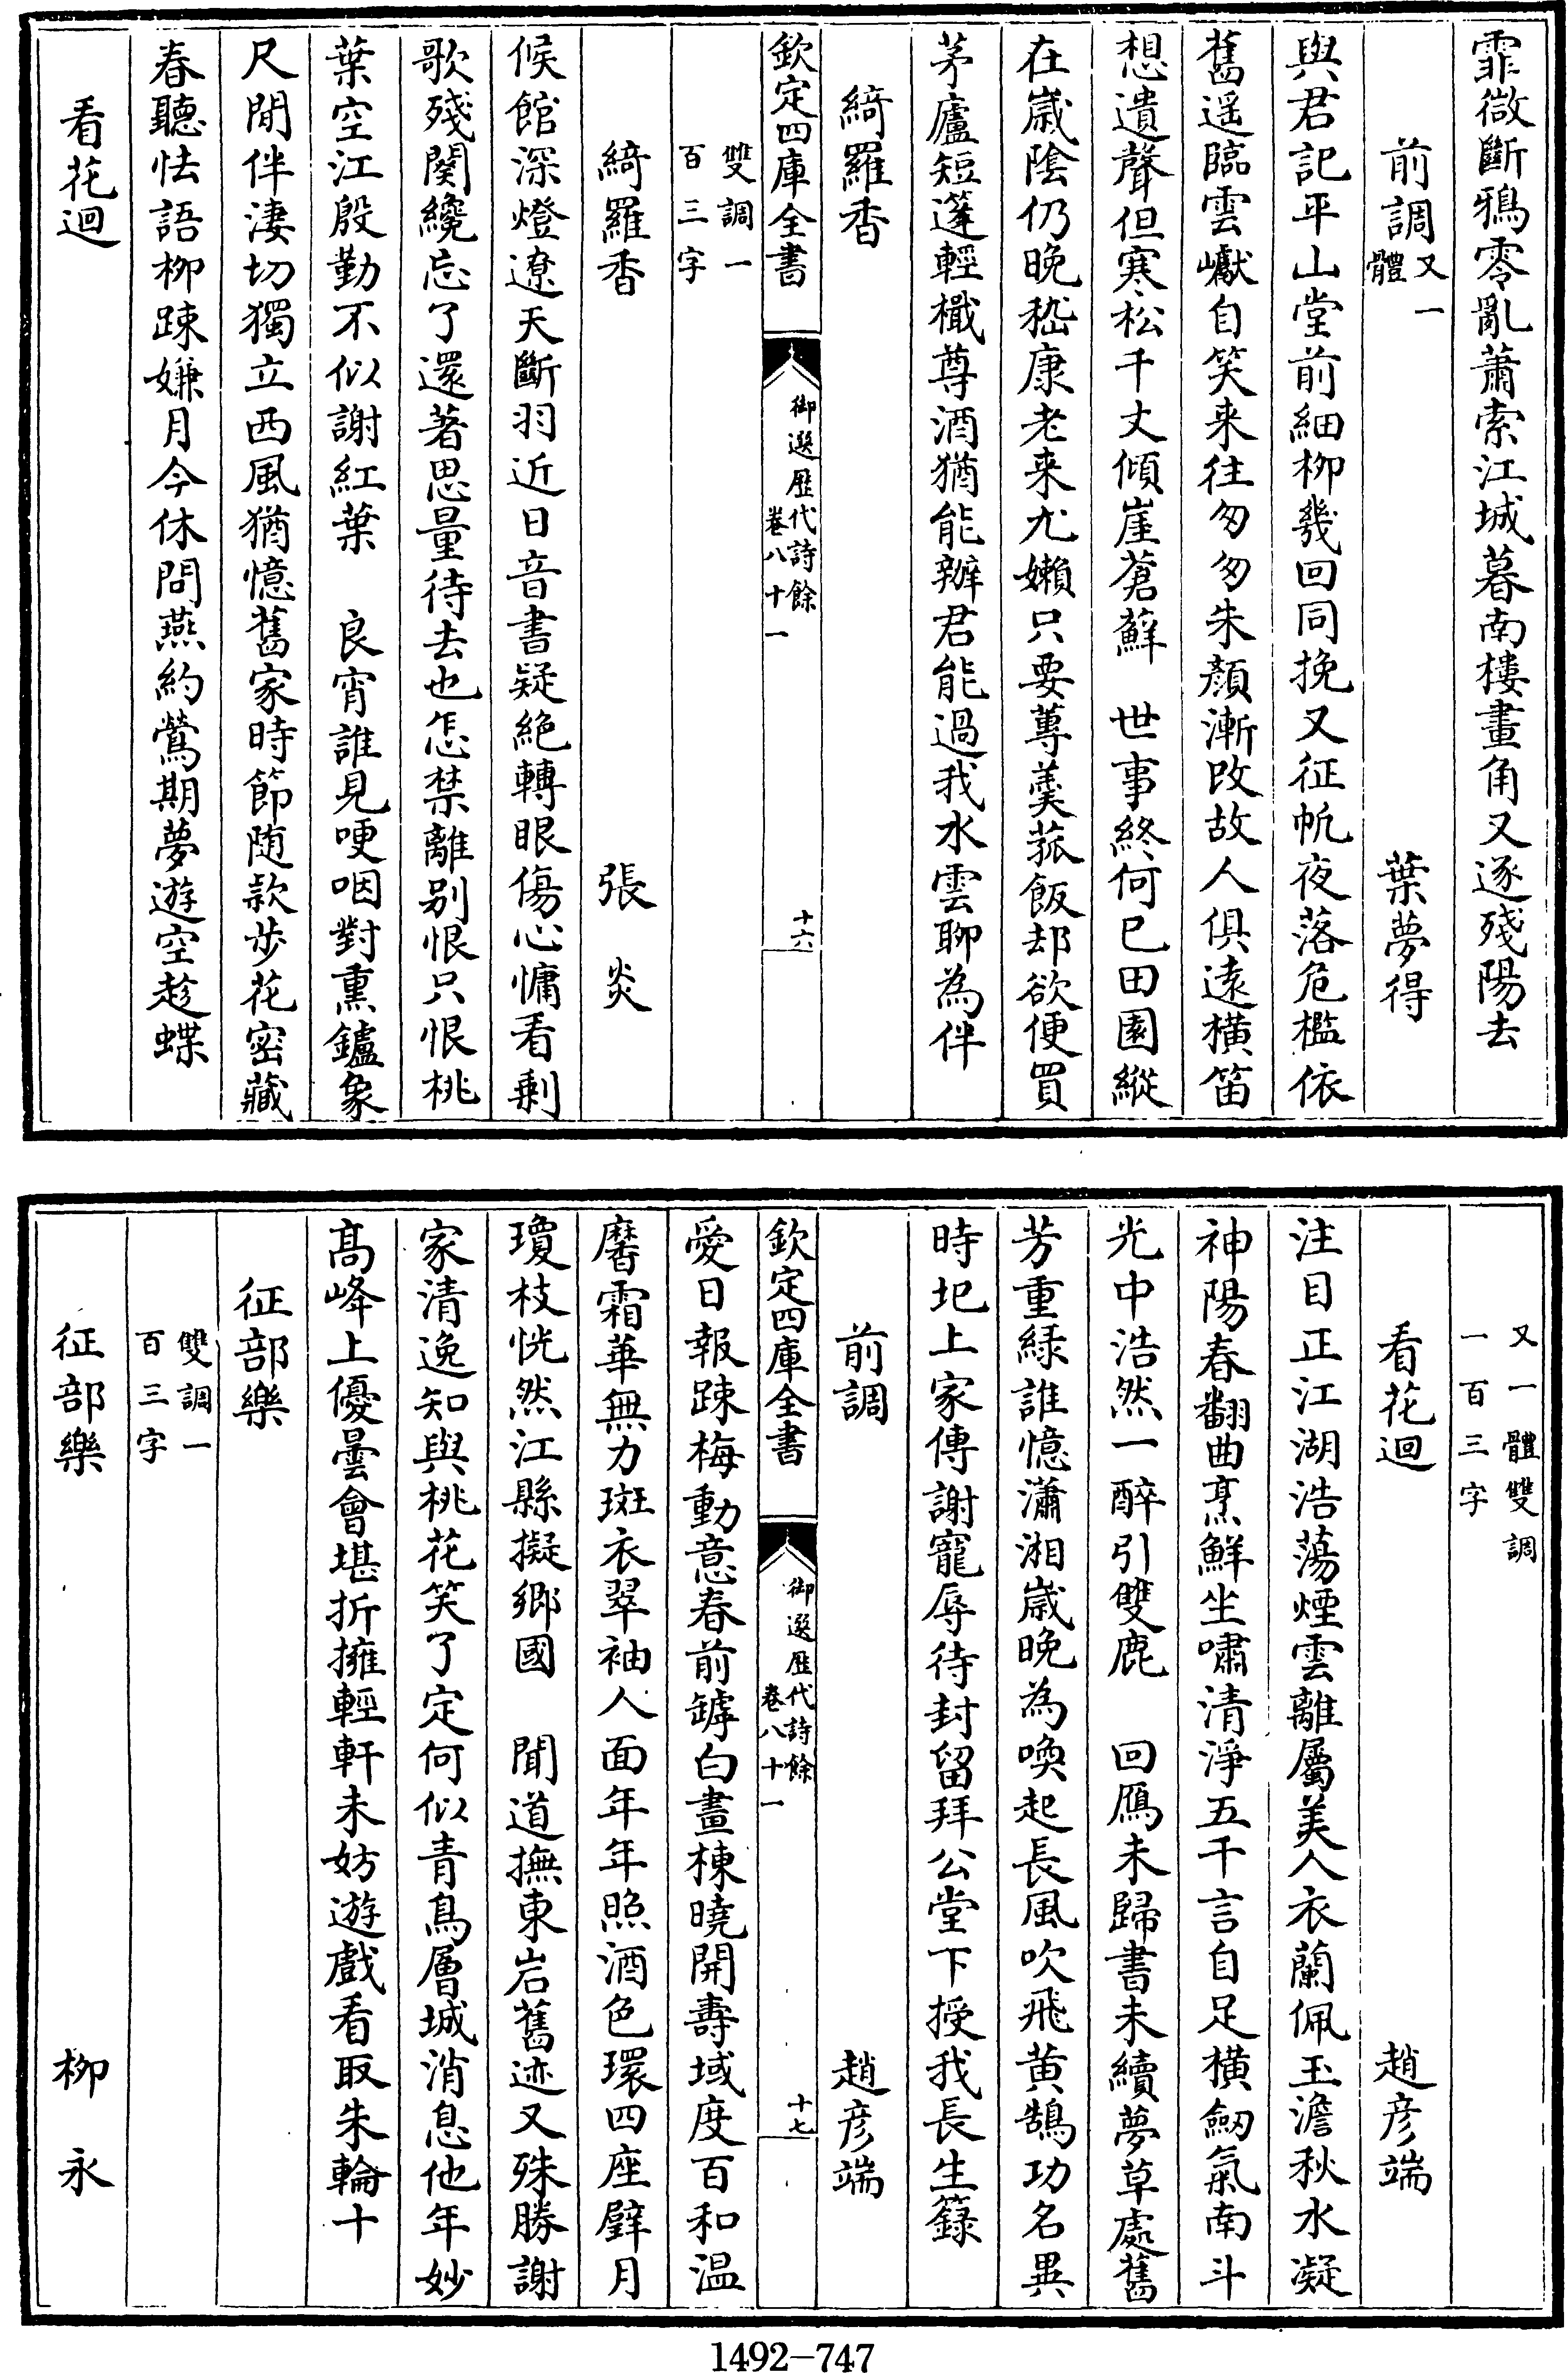 霏微斷鴉零亂蕭索江城暮南樓畫角又逐殘陽去
前調又一體 葉夢得
與君記平山堂前細柳幾回同挽又征帆夜落危檻依
舊遥臨雲巘自笑来往匆匆朱顔漸改故人俱遠橫笛
想遺聲但寒松千丈傾崖蒼蘚 世事終何已田園縱
在歲隂仍晚嵇康老来尤嬾只要蓴羮菰飯却欲便買
茅廬短篷輕檝尊酒猶能辦君能過我水雲聊為伴
綺羅香
欽定四庫全書 御選歷代詩餘 卷八十一 十六
雙調一百三字
綺羅香 張炎
候館深燈遼天斷羽近日音書疑絶轉眼傷心慵看剩
歌殘闋纔忘了還著思量待去也怎禁離别恨只恨桃
葉空江殷勤不似謝紅葉 良宵誰見哽咽對熏鑪象
尺閒伴淒切獨立西風猶憶舊家時節随款步花密藏
春聽怯語柳踈嫌月今休問燕約鶯期夢遊空趁蝶
看花迴
又一體雙調一百三字
看花迴 趙彦端
注目正江湖浩蕩煙雲離屬美人衣蘭佩玉澹秋水凝
神陽春翻曲烹鮮坐嘯清淨五千言自足橫劒氣南斗
光中浩然一醉引雙鹿 回鴈未歸書未續夢草處舊
芳重緑誰憶瀟湘歲晚為喚起長風吹飛黄鵠功名異
時圯上家傳謝寵辱待封留拜公堂下授我長生籙
前調 趙彦端
欽定四庫全書 御選歷代詩餘 卷八十一 十七
愛日報踈梅動意春前罅白畫棟曉開壽域度百和温
麐霜華無力斑衣翠袖人面年年照酒色環四座璧月
瓊枝恍然江縣擬鄉國 聞道撫東岩舊迹又殊勝謝
家清逸知與桃花笑了定何似青鳥層城消息他年妙
髙峰上優曇會堪折擁輕軒未妨遊戲看取朱輪十
征部樂
雙調一百三字
征部樂 柳永
1492-747